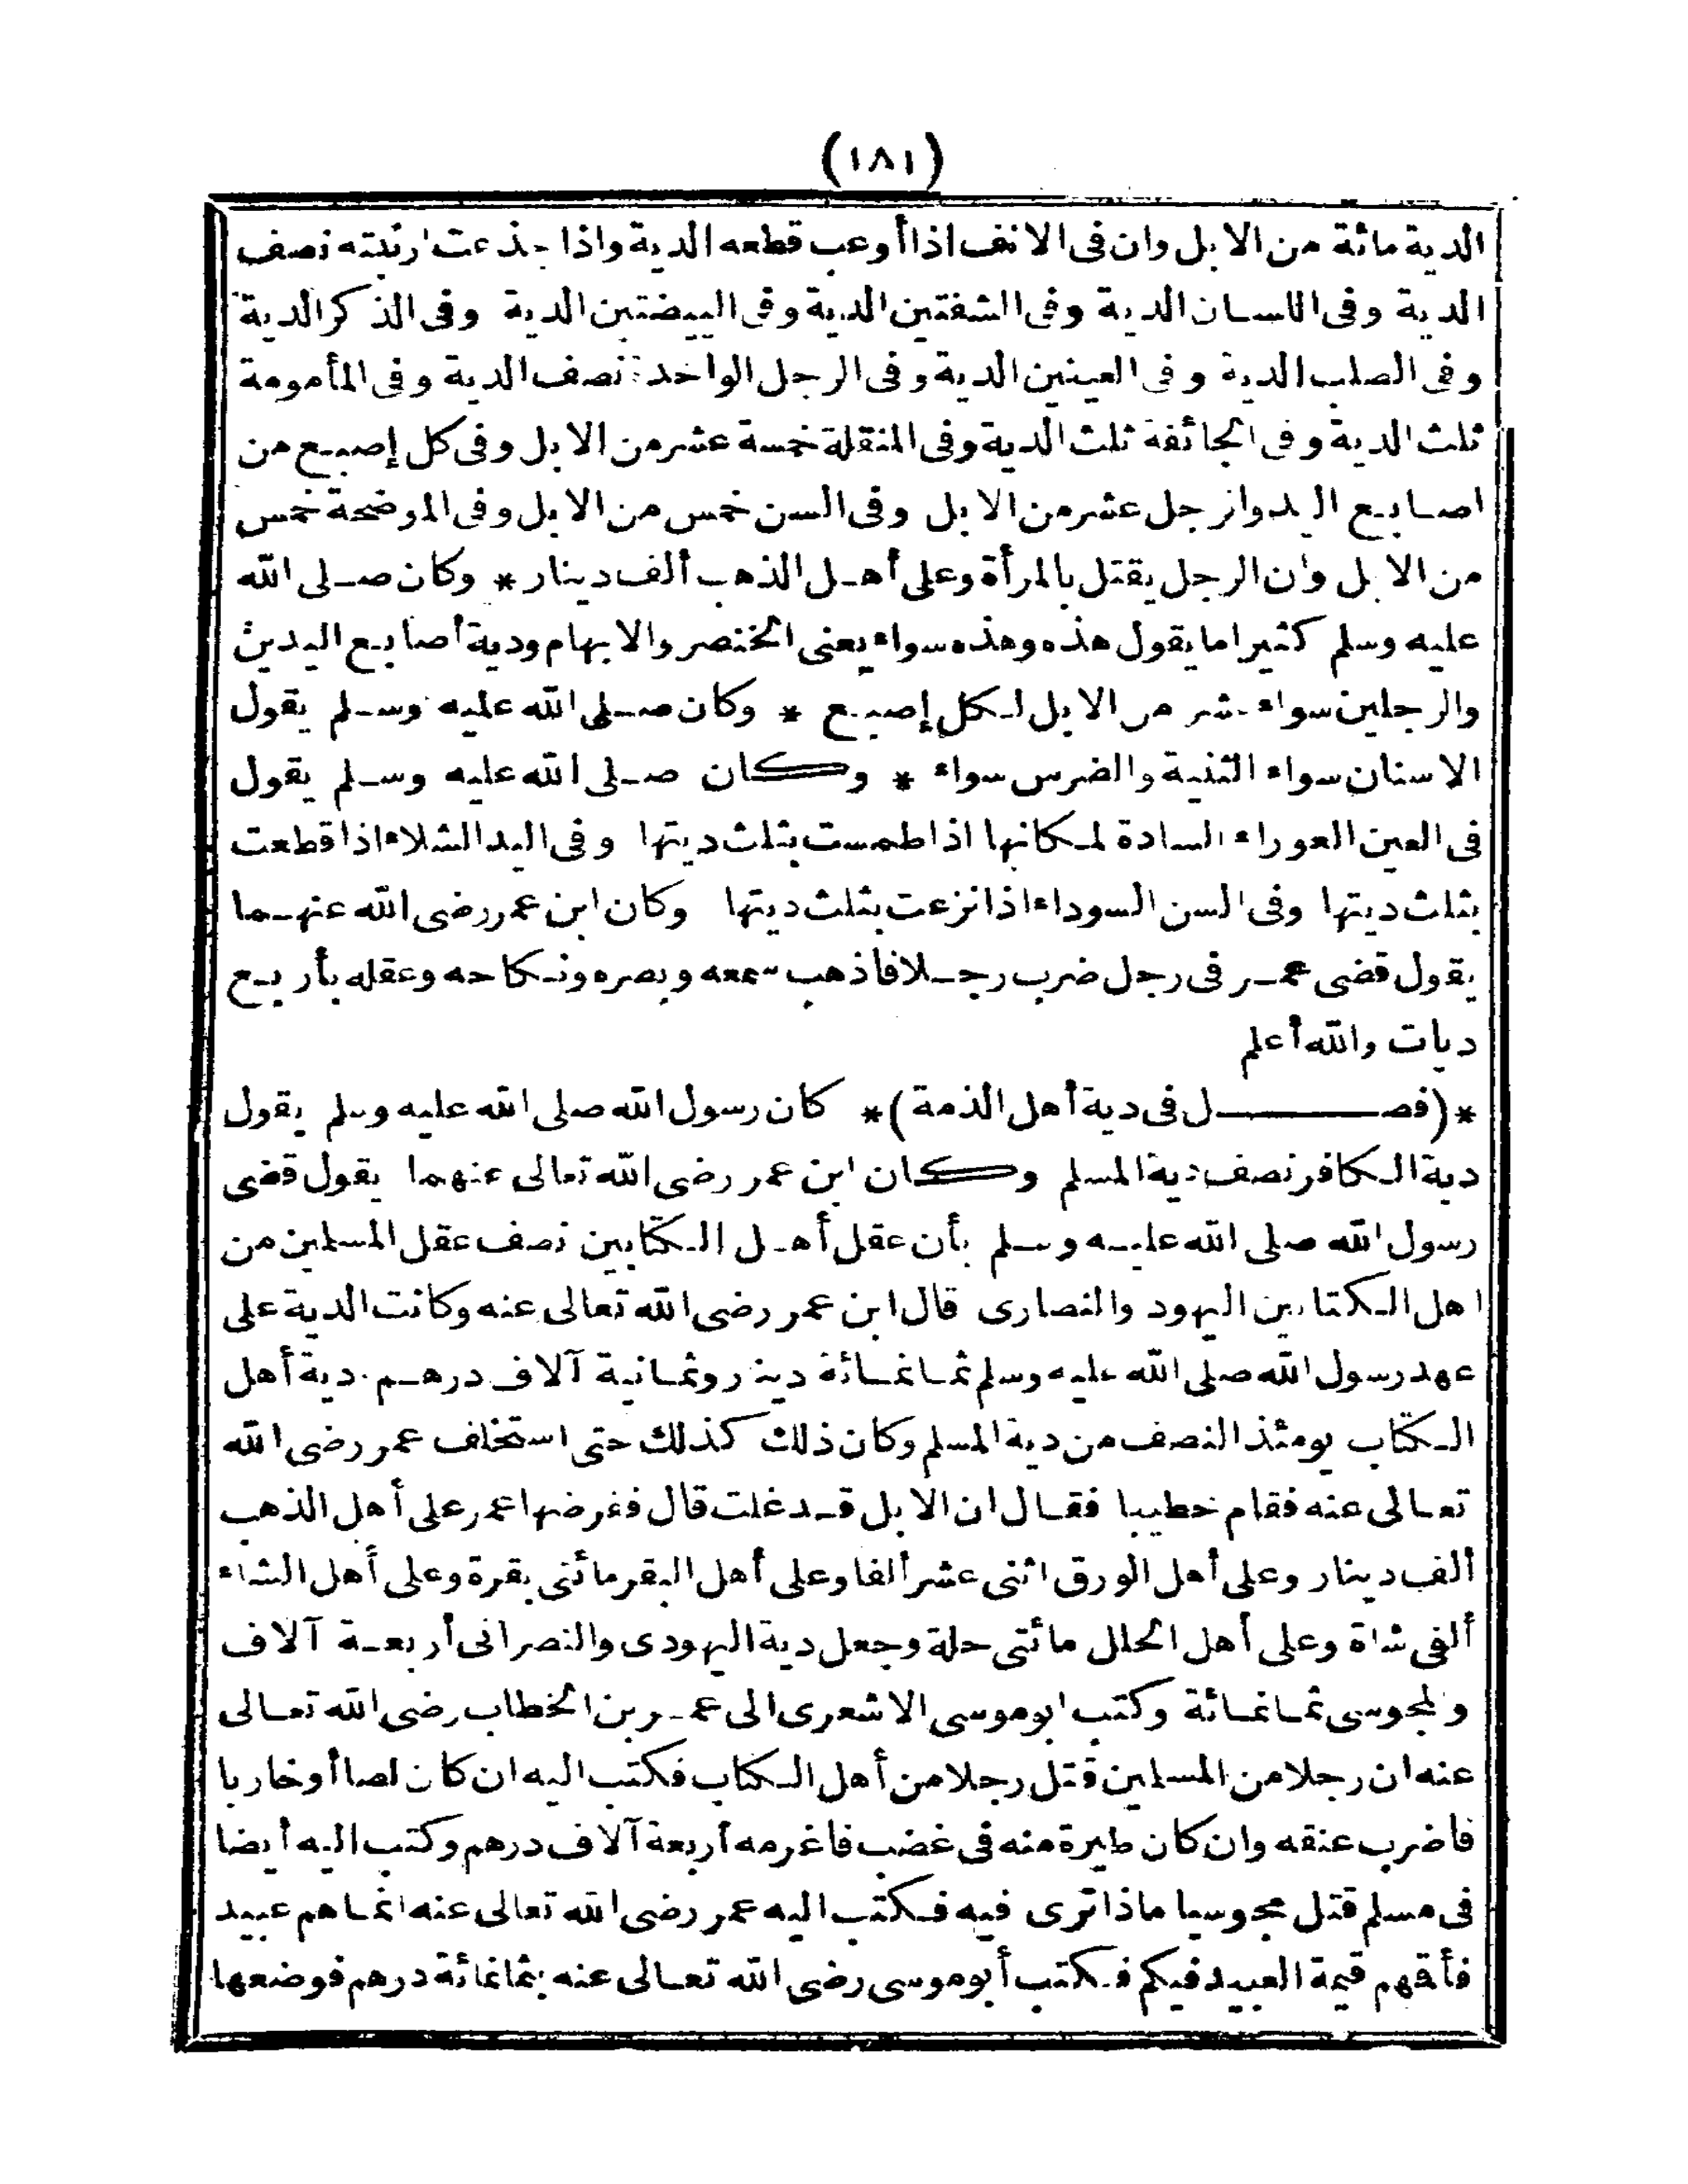 (١٨١)
الدية مائة من الابل وان فى الانف اذا أوعب قطعه الدية واذا جذعت ارنبته نصف
الدية وفى اللسان الدية وفى الشفتين الدية وفى البيضتين الدية وفى الذكر الدية
وفى الصلب الدية وفى العينين الدية وفى الرجل الواحدة نصف الدية وفى المأمومة
ثلث الدية وفى الجائفة ثلث الدية وفى المنقلة خمسة عشر من الابل وفى كل إصبع من
اصابع اليد والرجل عشر من الابل وفى السن خمس من الابل وفى الموضحة خمس
من الابل وان الرجل يقتل بالمرأة وعلى أهل الذهب ألف دينار * وكان صلى الله
عليه وسلم كثيرا ما يقول هذه وهذه سواء يعنى الخنصر والابهام ودية أصابع اليدين
والرجلين سواء عشر من الابل لكل إصبع * وكان صلى الله عليه وسلم يقول
الاسنان سواء الثنية والضرس سواء * وكان صلى الله عليه وسلم يقول
فى العين العوراء السادة لمكانها اذا طمست بثلث ديتها وفى اليد الشلاء اذا قطعت
بثلث ديتها وفى السن السوداء اذا نزعت بثلث ديتها وكان ابن عمر رضى الله عنهما
يقول قضى عمر فى رجل ضرب رجلا فاذهب سمعه وبصره ونكاحه وعقله بأربع
ديات والله أعلم
*(فصل فى دية أهل الذمة)* كان رسول الله صلى الله عليه وسلم يقول
دية الكافر نصف دية المسلم وكان ابن عمر رضى الله تعالى عنهما يقول قضى
رسول الله صلى الله عليه وسلم بأن عقل أهل الكتابين نصف عقل المسلمين من
اهل الكتابين اليهود والنصارى قال ابن عمر رضى الله تعالى عنه وكانت الدية على
عهد رسول الله صلى الله عليه وسلم ثمانمائة دينار وثمانية آلاف درهم. دية أهل
الكتاب يومئذ النصف من دية المسلم وكان ذلك كذلك حتى استخلف عمر رضى الله
تعالى عنه فقام خطيبا فقال ان الابل قد غلت قال ففرضها عمر على أهل الذهب
ألف دينار وعلى أهل الورق اثنى عشر ألفا وعلى أهل البقر مائتى بقرة وعلى أهل الشاء
ألفى شاة وعلى أهل الحلل مائتى حلة وجعل دية اليهودى والنصرانى أربعة آلاف
والمجوسى ثمانمائة وكتب ابو موسى الاشعرى الى عمر بن الخطاب رضى الله تعالى
عنه ان رجلا من المسلمين قتل رجلا من أهل الكتاب فكتب اليه ان كان لصا أو خاربا
فاضرب عنقه وان كان طيرة منه فى غضب فاغرمه أربعة آلاف درهم وكتب اليه أيضا
فى مسلم قتل مجوسيا ماذا ترى فيه فكتب اليه عمر رضى الله تعالى عنه انما هم عبيد
فأقهم قيمة العبيد فيكم فكتب أبو موسى رضى الله تعالى عنه بثمانمائة درهم فوضعها